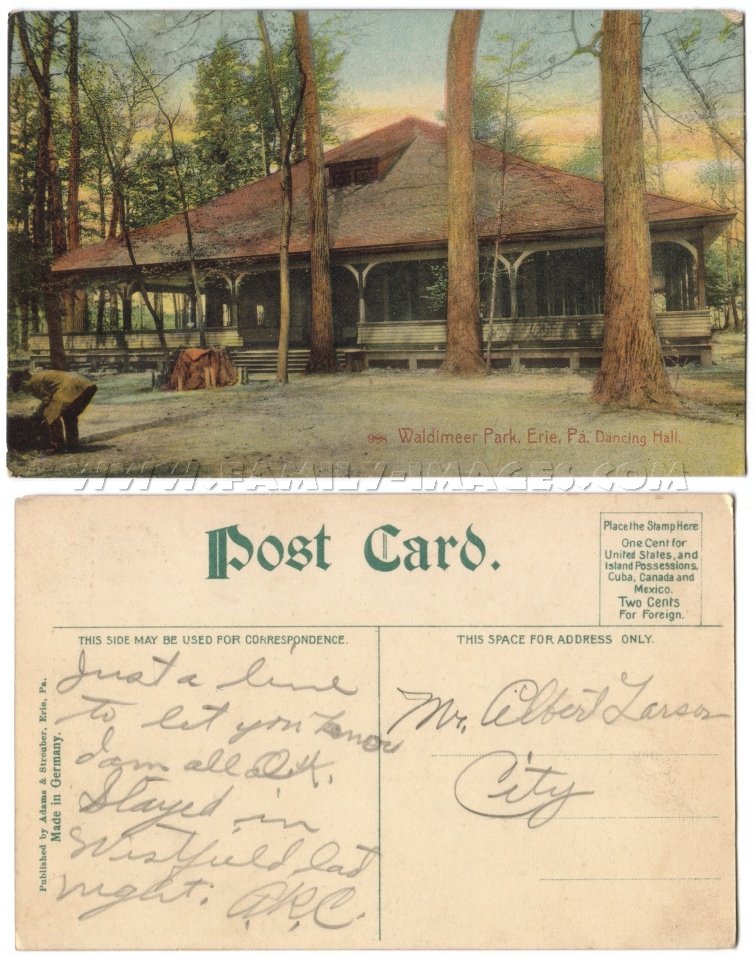 988 Waldimeer Park, Erie, Pa. Dancing Hall.
WWW.FAMILY-IMAGES.COM
Post Card.
Place the Stamp Here
One Cent for
United States, and
Island Possessions,
Cuba, Canada and
Mexico.
Two Cents
For Foreign.
THIS SIDE MAY BE USED FOR CORRESPONDENCE.
THIS SPACE FOR ADDRESS ONLY.
Published by Adams & Streuber, Erie, Pa.
Made in Germany.
Just a line
to let you know
I am all O.K.
Stayed in
Westfield last
night.
A.R.C.
Mr. Albert Larson
City